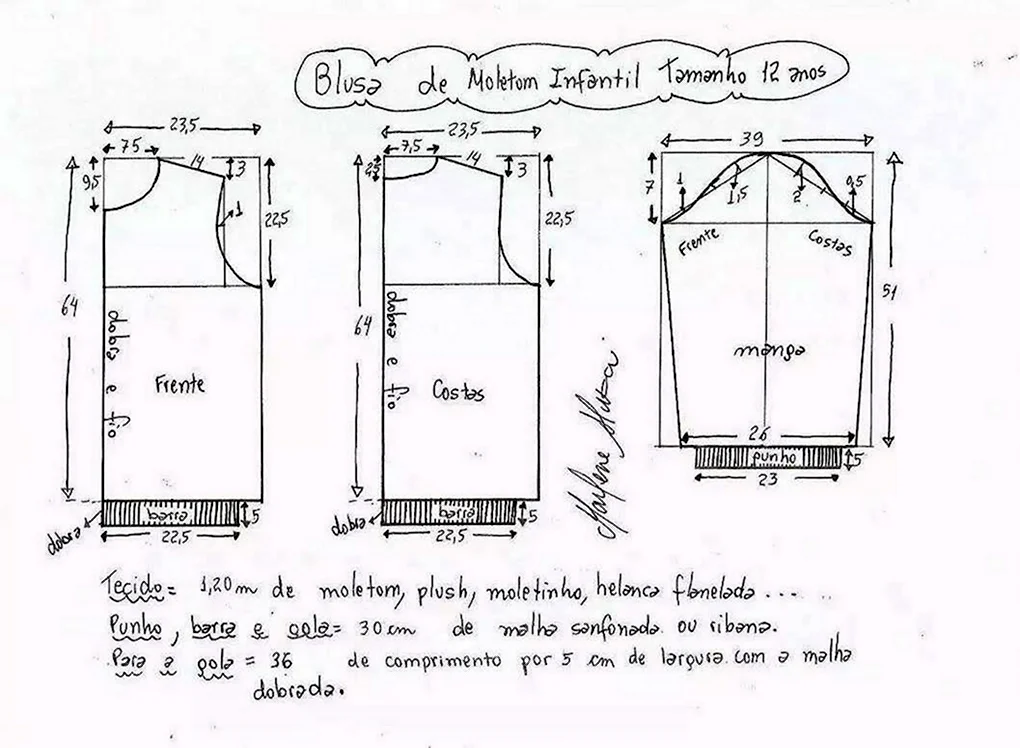 Blusa de Moletom Infantil Tamanho 12 anos
23,5
7,5
14
3
9,5
1
22,5
64
dobra e fio
Frente
barra
5
dobra
22,5
23,5
7,5
14
3
22,5
64
dobra e fio
Costas
barra
5
dobra
22,5
39
7
1
1,5
2
0,5
Frente
Costas
51
manga
26
punho
5
23
Marlene
Tecido = 1,20m de moletom, plush, moletinho, helanca flanelada ...
Punho, barra e gola = 30 cm de malha sanfonada ou ribana.
Para a gola = 36 de comprimento por 5 cm de largura com a malha
dobrada.